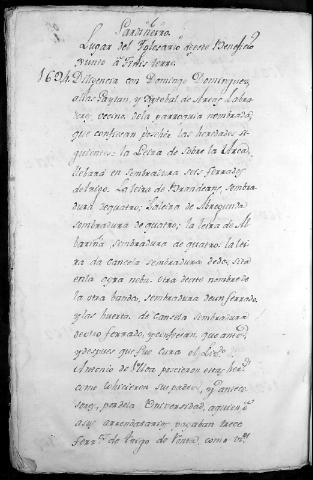 Sardiñeiro.
Lugar del Iglesario deste Beneficio
Junto á Finis terre.
1624. Diligencia con Domingo Dominguez,
alias Paytan, y Xptobal de Areas labra
dores, vecinos de la parroquia nombrada,
que confiesan posehér las heredades si-
guientes: La Leira de sobre la Area,
llebará en sembradura seis ferrados
de trigo. La leira de sembra
dura de quatro; La leira de
sembradura de quatro; la leira de Al
bariña, sembradura de quatro: la lei
ra da Cancela sembradura dedos, sita
en la cora nobu. Otra deste nombre de
la otra banda, sembradura de un ferrado.
y la huerta de Cancela sembradura
de otro ferrado, y confiesan, que antes,
y despues que fue cura el Licdo
Antonio de Ulloa poseieron estas hers
como lo hicieron sus padres, y antece
sores, por de la Universidad, a quien, ó
a sus arrendatarios, pagaban trece
ferrs de trigo de Renta, como